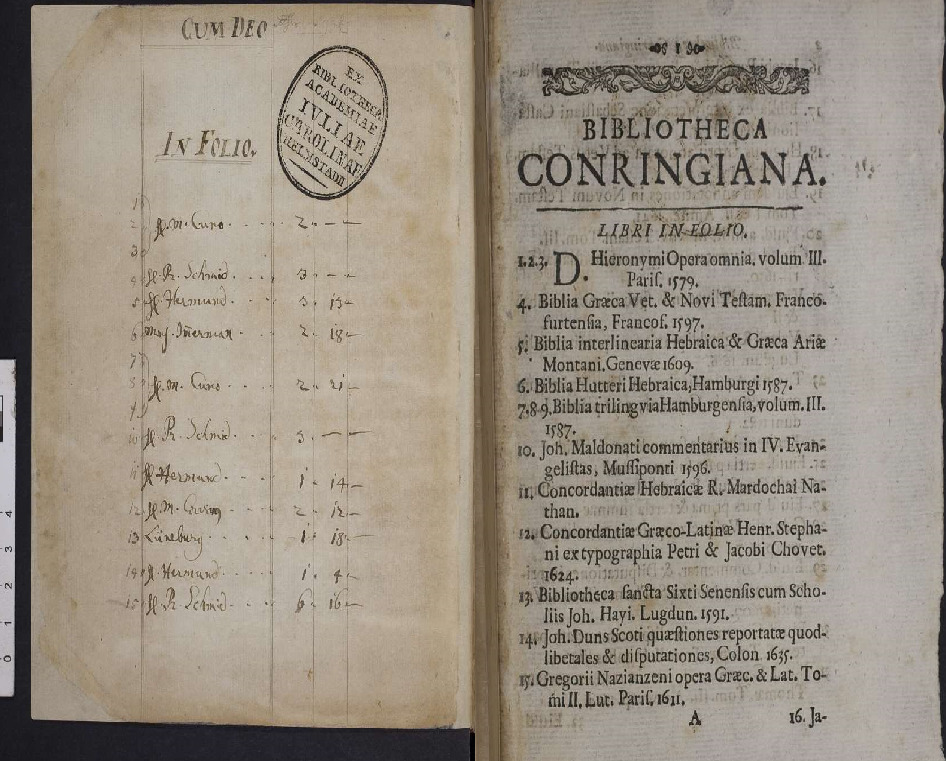 CUM DEO
EX
BIBLIOTHECA
ACADEMIAE
IVLIAE
CAROLINAE
HELMSTADII
IN FOLIO.
1
2 H. M. Cuno. 2. — —
3
4 H. R. Schmid. 3. — —
5 H. Hermund. 3. 13 —
6 2. 18 —
7
8 H. M. Cuno. 2. 21 —
9
10 H. R. Schmid. 3. — —
11 H. Hermund. 1. 14 —
12 H. M. 2. 12 —
13 Lüneburg. 1. 18 —
14 H. Hermund. 1. 4 —
15 H. R. Schmid. 6. 16 —
1
BIBLIOTHECA
CONRINGIANA.
LIBRI IN FOLIO.
1.2.3. D. Hieronymi Opera omnia, volum III.
Pariſ. 1579.
4. Biblia Græca Vet. & Novi Teſtam. Franco-
furtenſia, Francof. 1597.
5. Biblia interlinearia Hebraica & Græca Ariæ
Montani. Genevæ 1609.
6. Biblia Hutteri Hebraica, Hamburgi 1587.
7.8.9. Biblia trilingvia Hamburgenſia, volum. III.
1587.
10. Joh. Maldonati commentarius in IV. Evan-
geliſtas, Muſſiponti 1596.
11. Concordantiæ Hebraicæ R. Mardochai Na-
than.
12. Concordantiæ Græco-Latinæ Henr. Stepha-
ni ex typographia Petri & Jacobi Chovet.
1624.
13. Bibliotheca ſancta Sixti Senenſis cum Scho-
liis Joh. Hayi. Lugdun. 1591.
14. Joh. Duns Scoti quæſtiones reportatæ quod-
libetales & diſputationes, Colon. 1635.
15. Gregorii Nazianzeni opera Græc. & Lat. To-
mi II. Lut. Pariſ. 1611.
A 16. Ja-
0 1 2 3 4